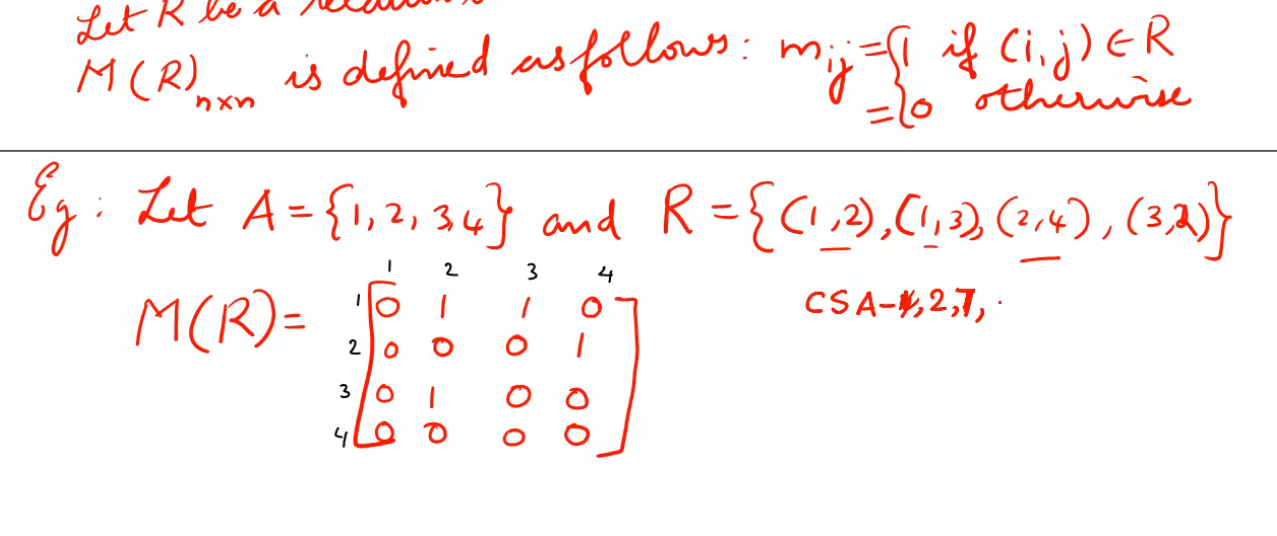 Let R be a relation
M(R)n×n is defined as follows: mij = {1 if (i,j) ∈ R
= {0 otherwise
Eg: Let A = {1, 2, 3, 4} and R = {(1,2), (1,3), (2,4), (3,2)}
1 2 3 4
M(R) = 1 [0 1 1 0]
2 0 0 0 1
3 0 1 0 0
4 0 0 0 0
CSA-1, 2, 7, .